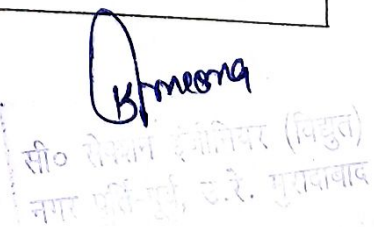 सी० सेक्शन इंजीनियर (विद्युत)
नगर पूर्ति-पूर्व, उ.रे. मुरादाबाद